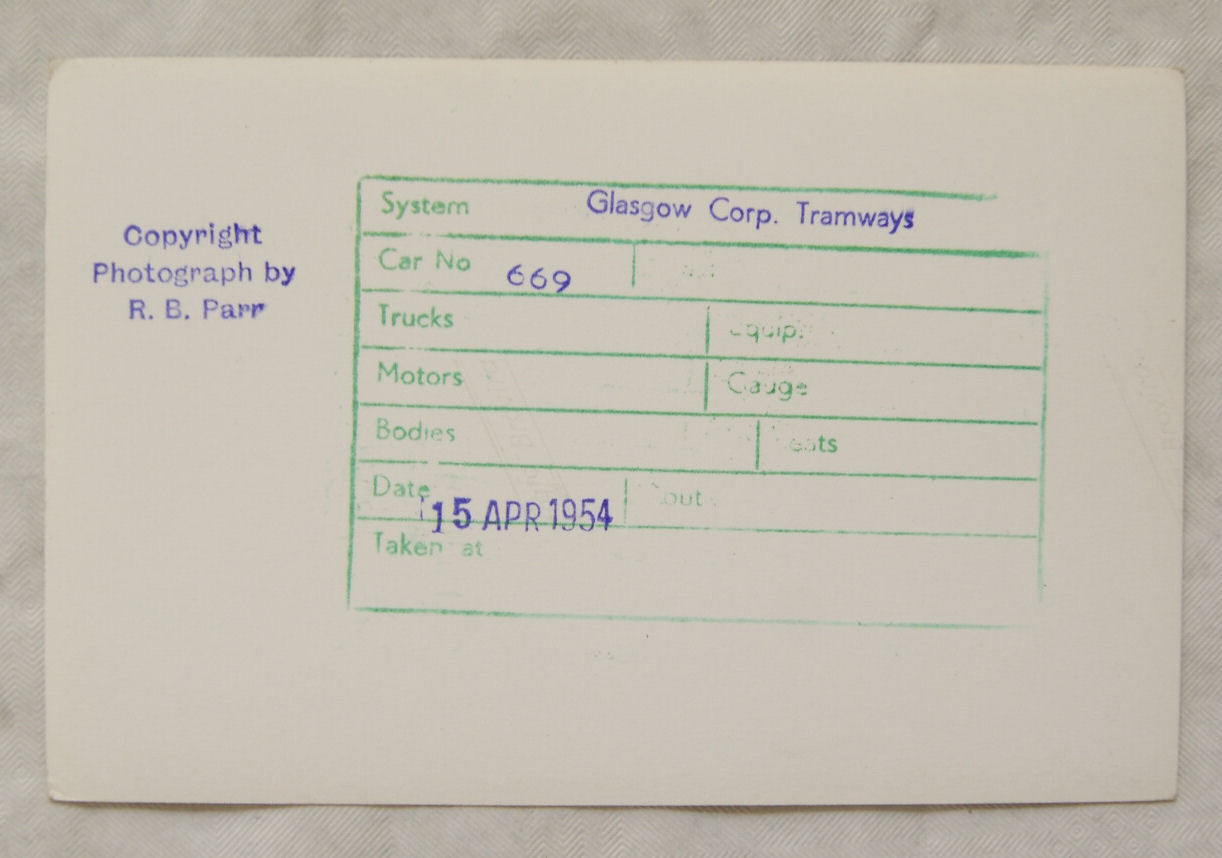 Copyright
Photograph by
R. B. Parr
System Glasgow Corp. Tramways
Car No 669
Trucks Equip.
Motors Gauge
Bodies
Date 15 APR 1954
Taken at